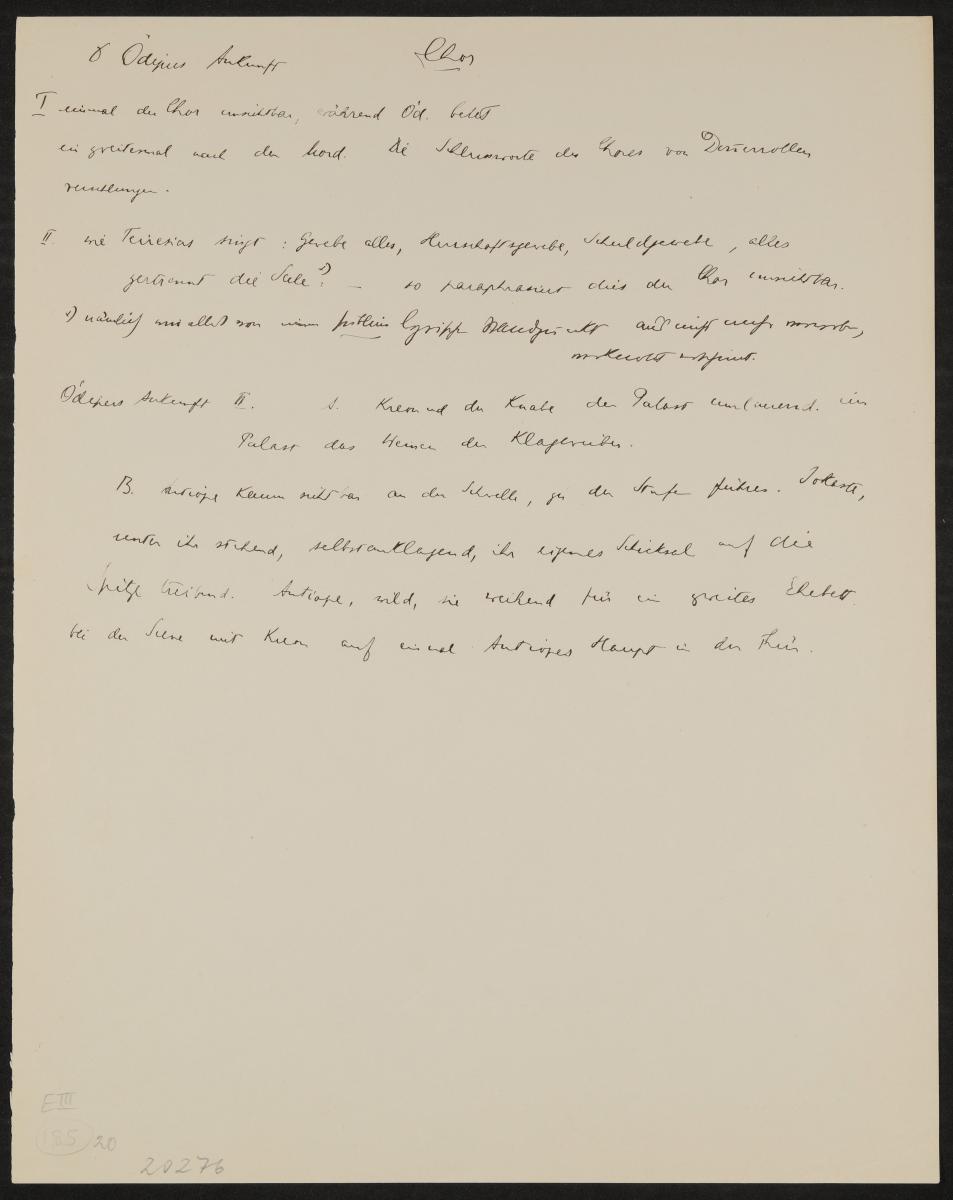 Ödipus Ankunft Chor
I einmal der Chor unsichtbar, während Öd. betet
ein zweitesmal nach dem Mord. Die Schlussworte des Chores von
verschlungen.
II. wie Teiresias singt: Gewebe alles, Herrschaftsgewebe, Schuldgewebe, alles
getrennt die Seele 1)? – so paraphrasiert dies der Chor unsichtbar.
1) nämlich wie alles von einem Standpunkt aus nicht mehr
erscheint.
Ödipus Ankunft II. Kreon und der Knabe den Palast umlauernd. im
Palast das Weinen der Klageweiber.
B. Antiope kaum sichtbar an der Schwelle, zu der Stufen führen. Jokaste,
unter ihr stehend, selbstanklagend, ihr eigenes Schicksal auf die
Spitze treibend. Antiope, wild, sie weihend für ein zweites Ehebett.
bei der Scene mit Kreon auf einmal Antiopes Haupt in der Thür.
EIII
185 20
20276